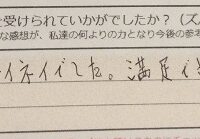 を受けられていかがでしたか？（ズ
な感想が、私達の何よりの力となり今後の参考
イネイでした。満足で